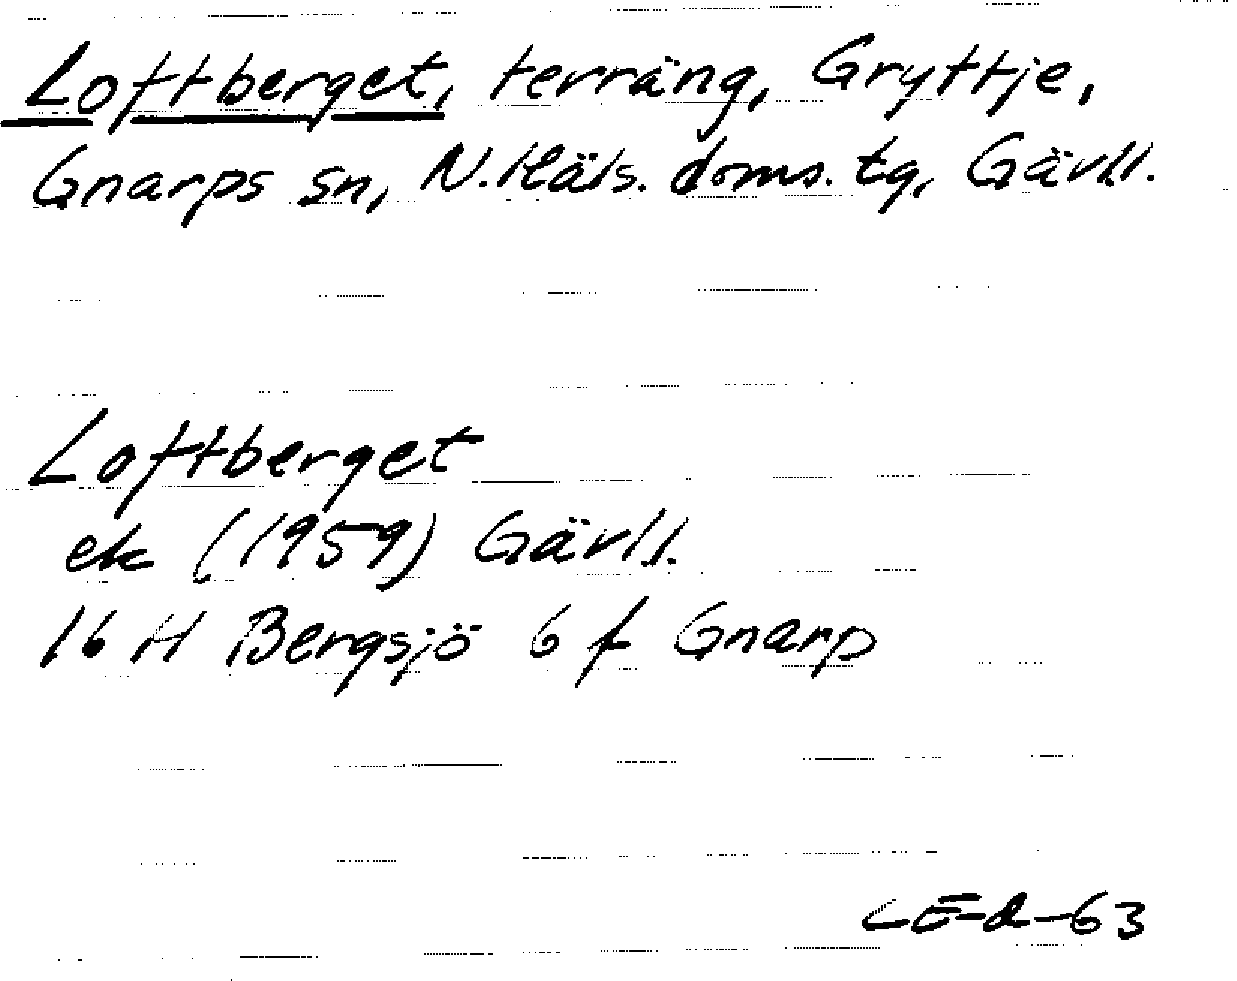 Loftberget, terräng, Gryttje,
Gnarps sn, N. Häls. doms. tg, Gävll.
Loftberget
ek (1959) Gävll.
16 H Bergsjö 6 f Gnarp